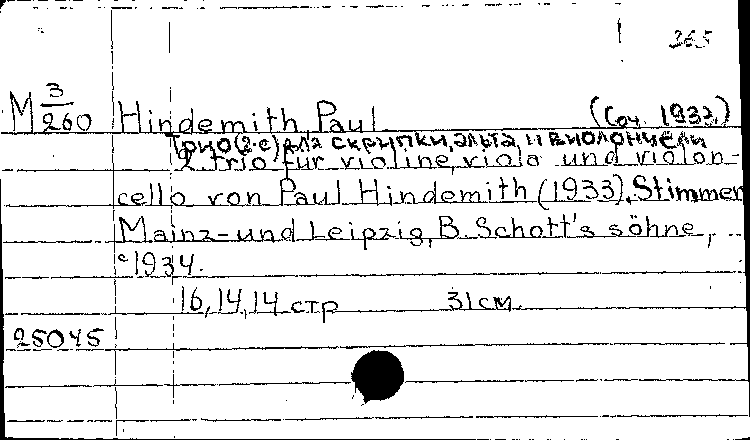 365
М 3/260 Hindemith, Paul (Соч. 1933.)
Трио (2-е) для скрипки, альта, и виолончели
2. trio für violine, viola und violon-
cello von Paul Hindemith (1933). Stimmen
Mainz- und Leipzig, B. Schott's söhne,
c1934.
16, 14, 14 стр 31 см.
25045